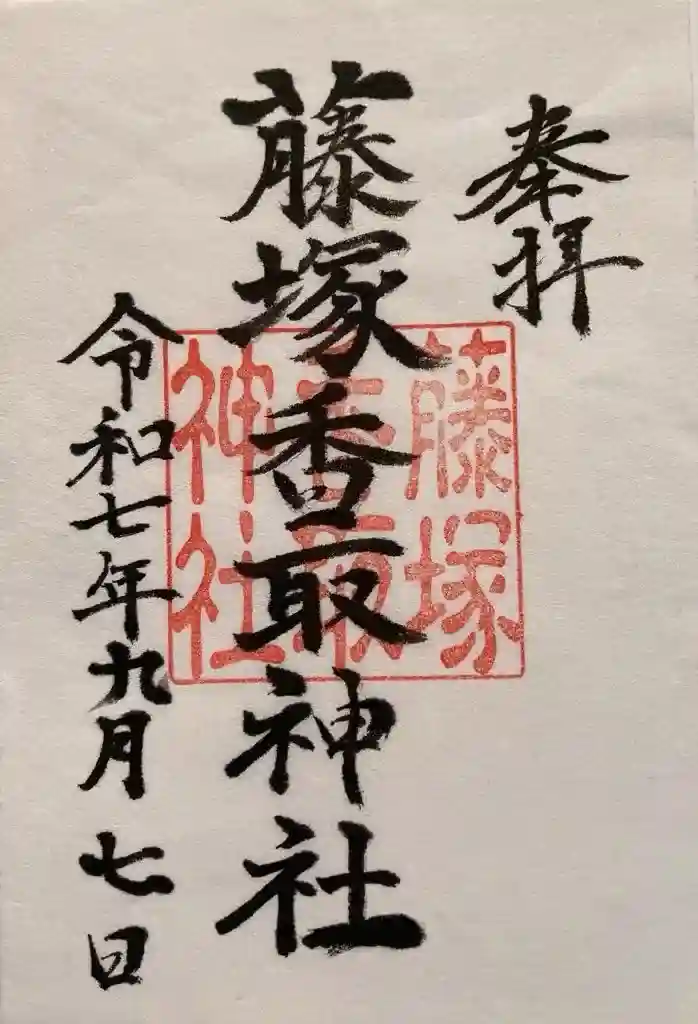 奉拝
藤塚香取神社
藤塚
香取
神社
令和七年九月七日